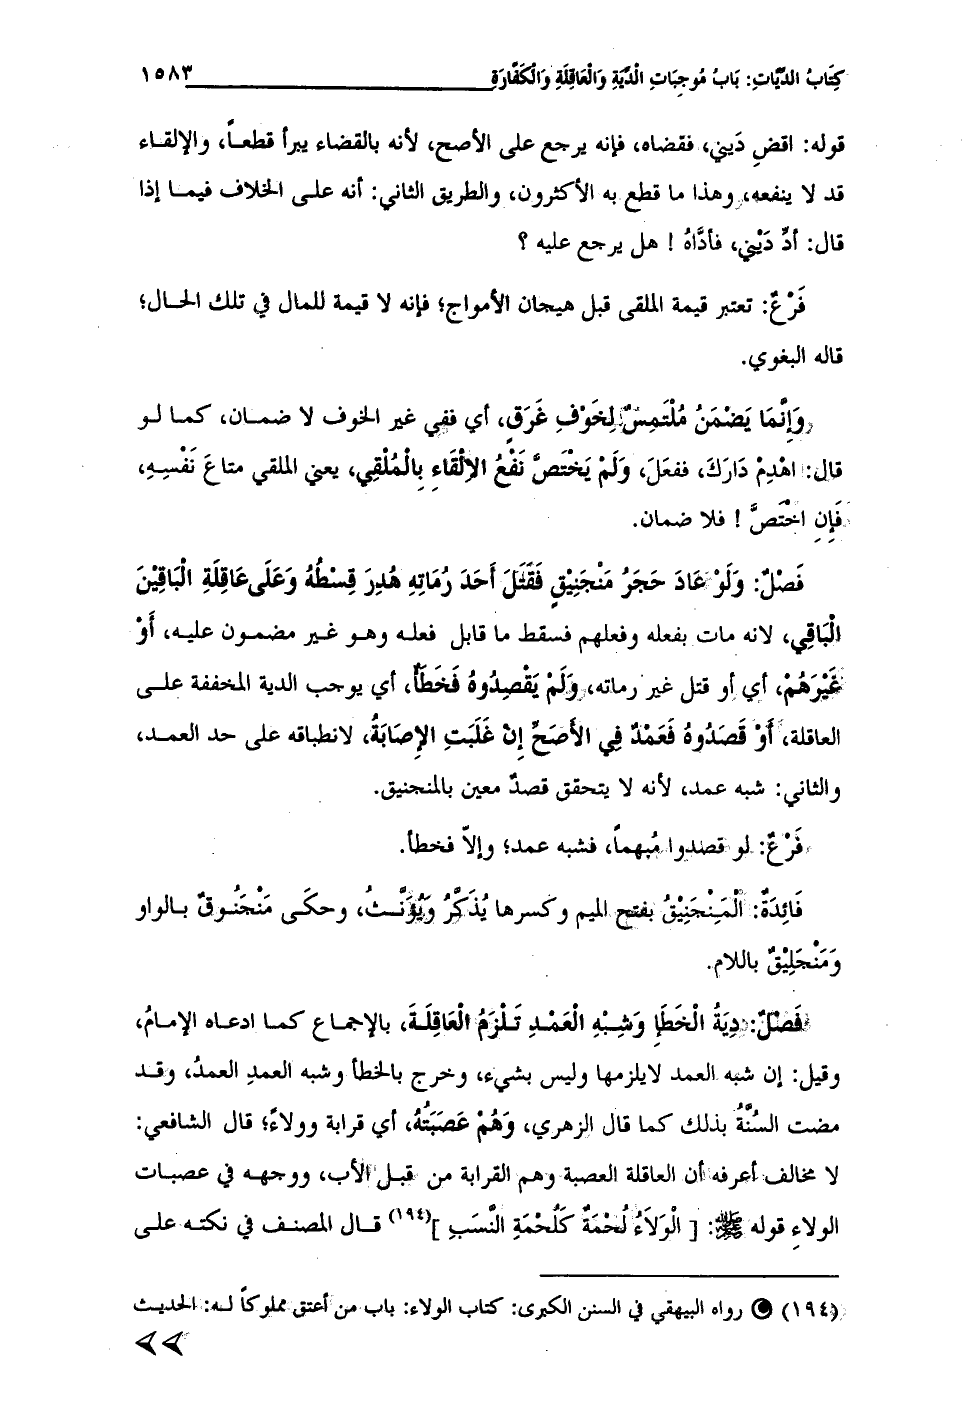 كِتَابُ الدِّيَّاتِ: بَابُ مُوجِبَاتِ الْدِّيَةِ وَالْعَاقِلَةِ وَالْكَفَّارَةِ ١٥٨٣
قوله: اقضِ دَيني، فقضاه، فإنه يرجع على الأصح، لأنه بالقضاء يبرأ قطعاً، والإلقاء
قد لا ينفعه، وهذا ما قطع به الأكثرون، والطريق الثاني: أنه على الخلاف فيما إذا
قال: أدِّ دَيْني، فأدَّاهُ ! هل يرجع عليه ؟
فَرْعٌ: تعتبر قيمة الملقى قبل هيجان الأمواج؛ فإنه لا قيمة للمال في تلك الحال؛
قاله البغوي.
وَإِنَّمَا يَضْمَنُ مُلْتَمِسٌ لِخَوْفِ غَرَقٍ، أي ففي غير الخوف لا ضمان، كما لو
قال: اهْدِمْ دَارَكَ، ففعَلَ، وَلَمْ يَخْتَصَّ نَفْعُ الإِلْقَاءِ بِالْمُلْقِي، يعني الملقي متاعَ نَفْسِهِ،
فَإِنِ اخْتَصَّ ! فلا ضمان.
فَصْلٌ: وَلَوْ عَادَ حَجَرُ مَنْجَنِيْقٍ فَقَتَلَ أَحَدَ رُمَاتِهِ هُدِرَ قِسْطُهُ وَعَلَى عَاقِلَةِ الْبَاقِيْنَ
الْبَاقِي، لانه مات بفعله وفعلهم فسقط ما قابل فعله وهو غير مضمون عليه، أَوْ
غَيْرَهُمْ، أي أو قتل غير رماته، وَلَمْ يَقْصِدُوهُ فَخَطَأٌ، أي يوجب الدية المخففة على
العاقلة، أَوْ قَصَدُوهُ فَعَمْدٌ فِي الأَصَحِّ إِنْ غَلَبَتِ الإِصَابَةُ، لانطباقه على حد العمد،
والثاني: شبه عمد، لأنه لا يتحقق قصدٌ معين بالمنجنيق.
فَرْعٌ: لو قصدوا مُبهماً، فشبه عمد؛ وإلاّ فخطأ.
فَائِدَةٌ: الْمَنْجَنِيْقُ بفتح الميم وكسرها يُذَكَّرُ وَيُؤَنَّثُ، وحكَى مَنْجَنُوقٌ بالواو
وَمَنْجَلِيْقٌ باللام.
فَصْلٌ: دِيَةُ الْخَطَإِ وَشِبْهِ الْعَمْدِ تَلْزَمُ الْعَاقِلَةَ، بالإجماع كما ادعاه الإمامُ،
وقيل: إن شبه العمد لايلزمها وليس بشيء، وخرج بالخطأ وشبه العمدِ العمدُ، وقد
مضت السُنَّةُ بذلك كما قال الزهري، وَهُمْ عَصَبَتُهُ، أي قرابة وولاءً؛ قال الشافعي:
لا مخالف أعرفه أن العاقلة العصبة وهم القرابة من قبل الأب، ووجهه في عصبات
الولاءِ قوله ﷺ: [ الْوَلاَءُ لُحْمَةٌ كَلُحْمَةِ النَّسَبِ ](١٩٤) قال المصنف في نكته على
(١٩٤) رواه البيهقي في السنن الكبرى: كتاب الولاء: باب من أعتق مملوكاً له: الحديث